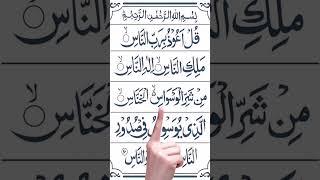 بِسْمِ اللهِ الرَّحْمٰنِ الرَّحِيْمِ
قُلْ اَعُوْذُ بِرَبِّ النَّاسِ
مَلِكِ النَّاسِ اِلٰهِ النَّاسِ
مِنْ شَرِّ الْوَسْوَاسِ الْخَنَّاسِ
الَّذِیْ يُوَسْوِسُ فِیْ صُدُوْرِ
النَّاسِ وَالنَّاسِ